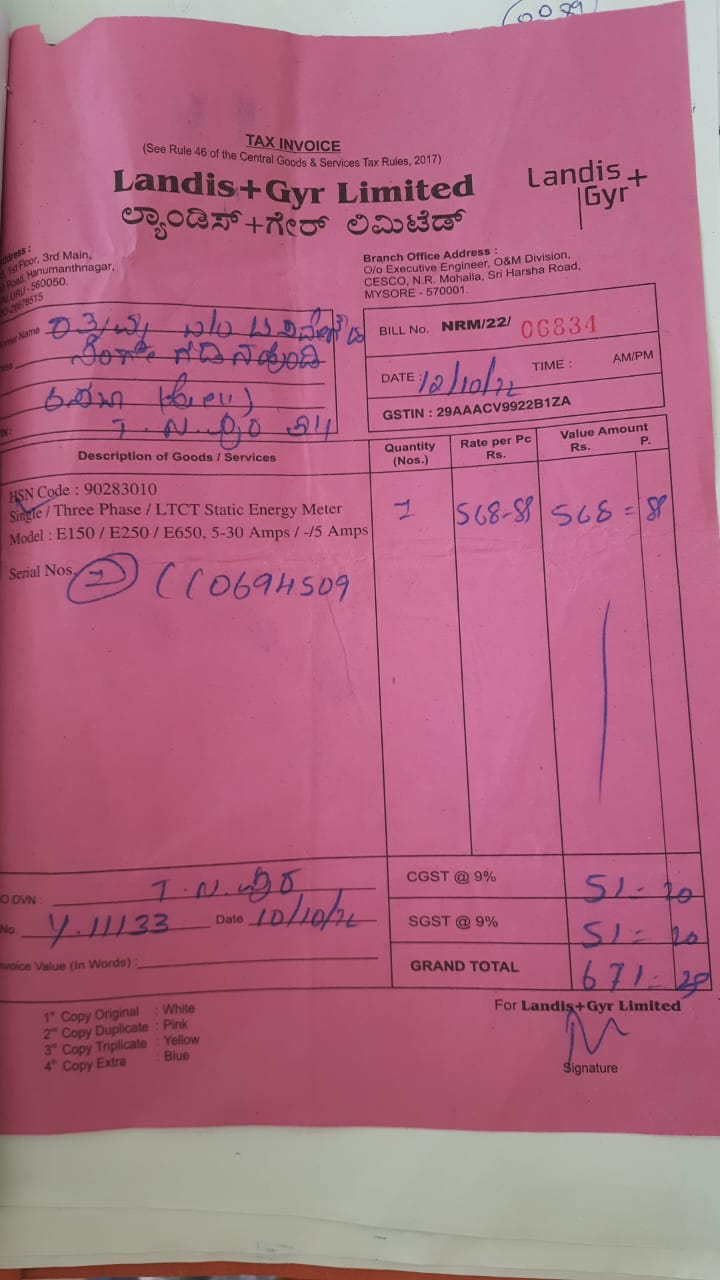 0089
TAX INVOICE
(See Rule 46 of the Central Goods & Services Tax Rules, 2017)
Landis+Gyr Limited
ಲ್ಯಾಂಡಿಸ್+ಗೇರ್ ಲಿಮಿಟೆಡ್
Landis+
Gyr
1st Floor, 3rd Main,
Road, Hanumanthnagar,
560050.
Branch Office Address :
O/o Executive Engineer, O&M Division,
CESCO, N.R. Mohalla, Sri Harsha Road,
MYSORE - 570001.
Name
BILL No. NRM/22/ 06834
DATE : 12/10/22 TIME : AM/PM
GSTIN : 29AAACV9922B1ZA
Description of Goods / Services
Quantity
(Nos.)
Rate per Pc
Rs.
Value Amount
Rs. P.
HSN Code : 90283010
Single / Three Phase / LTCT Static Energy Meter
Model : E150 / E250 / E650, 5-30 Amps / -/5 Amps
1 568-88 568 = 88
Serial Nos. 1 110694509
O DVN : T. N.
No. Y.11133 Date 10/10/22
Invoice Value (In Words) :
CGST @ 9% 51 - 20
SGST @ 9% 51 = 20
GRAND TOTAL 671 = 28
1st Copy Original : White
2nd Copy Duplicate : Pink
3rd Copy Triplicate : Yellow
4th Copy Extra : Blue
For Landis+Gyr Limited
Signature